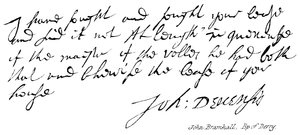 I have sought and sought your lease
and find it not At length In
of the master of the Rolles he had both
that and the lease of your
house
Joh: Derensis
John Bramhall, Bp of Derry